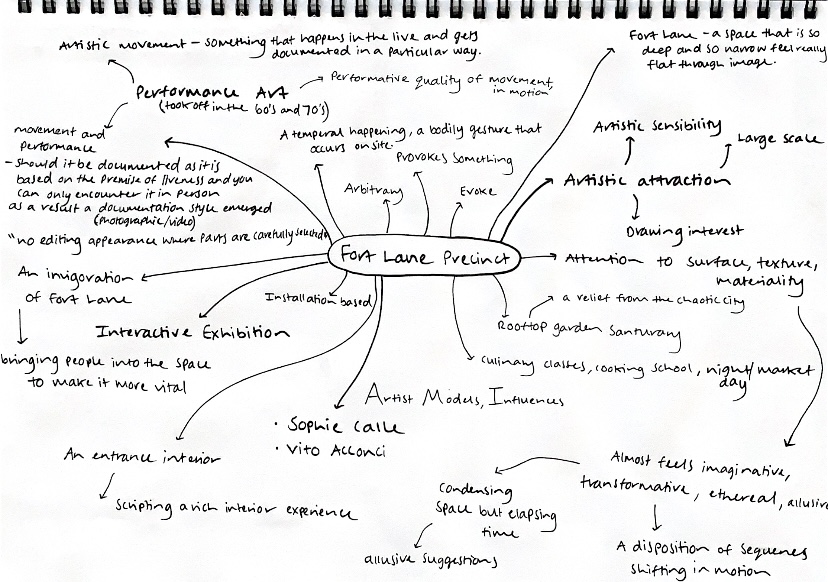 Fort Lane - a space that is so
deep and so narrow feel really
flat through image.
Artistic movement - something that happens in the live and gets
documented in a particular way.
Performance Art
(took off in the 60's and 70's)
Performative quality of movement,
in motion
movement and
performance
- should it be documented as it is
based on the premise of liveness and you
can only encounter it in person
as a result a documentation style emerged
(photographic/video)
"no editing appearance where parts are carefully selected"
A temporal happening, a bodily gesture that
occurs on site.
Provokes something
Arbitrary
Evoke
Artistic sensibility
Large scale
Artistic attraction
Drawing interest
Fort Lane Precinct
Attention to surface, texture,
materiality
An invigoration
of Fort Lane
Installation based
a relief from the chaotic city
Rooftop garden santurary
Interactive Exhibition
bringing people into the space
to make it more vital
culinary classes, cooking school, night/market
day
Artist Models, Influences
• Sophie Calle
• Vito Acconci
An entrance interior
scripting a rich interior experience
Almost feels imaginative,
transformative, ethereal, allusive
condensing
space but elapsing
time
allusive suggestions
A disposition of sequences
shifting in motion